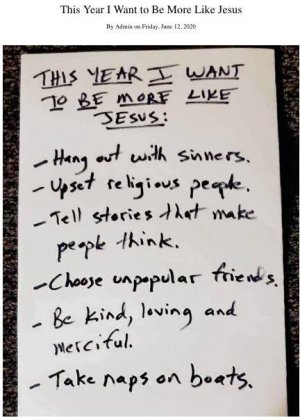 This Year I Want to Be More Like Jesus
By Admin on Friday, June 12, 2020
THIS YEAR I WANT
TO BE MORE LIKE
JESUS:
- Hang out with sinners.
- Upset religious people.
- Tell stories that make
people think.
- Choose unpopular friends.
- Be kind, loving and
merciful.
- Take naps on boats.